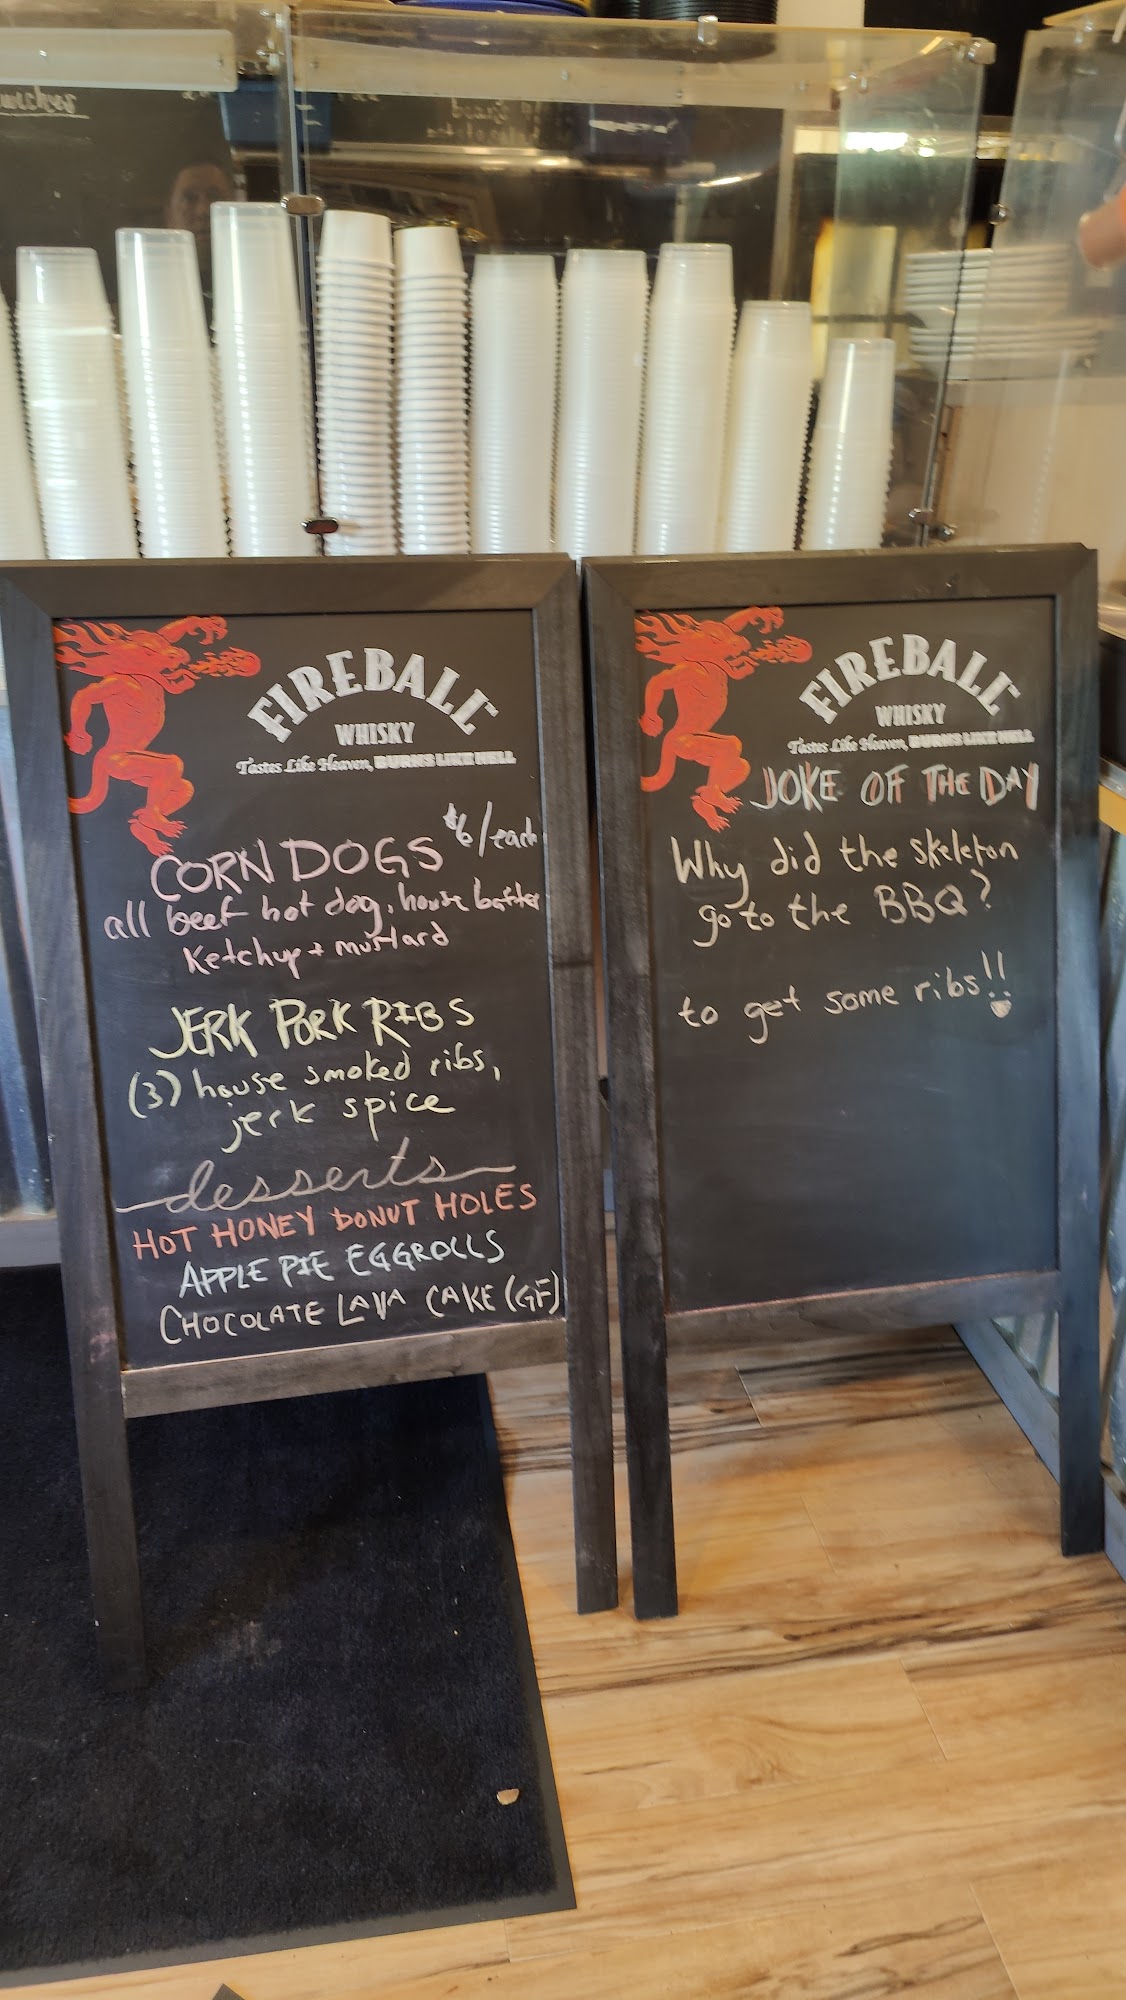 FIREBALL™
WHISKY
Tastes Like Heaven, BURNS LIKE HELL
CORN DOGS $6/each
all beef hot dog, house batter
Ketchup + mustard
JERK PORK RIBS
(3) house smoked ribs,
jerk spice
desserts
HOT HONEY DONUT HOLES
APPLE PIE EGGROLLS
CHOCOLATE LAVA CAKE (GF)
FIREBALL™
WHISKY
Tastes Like Heaven, BURNS LIKE HELL
JOKE OF THE DAY
Why did the skeleton
go to the BBQ?
to get some ribs!!